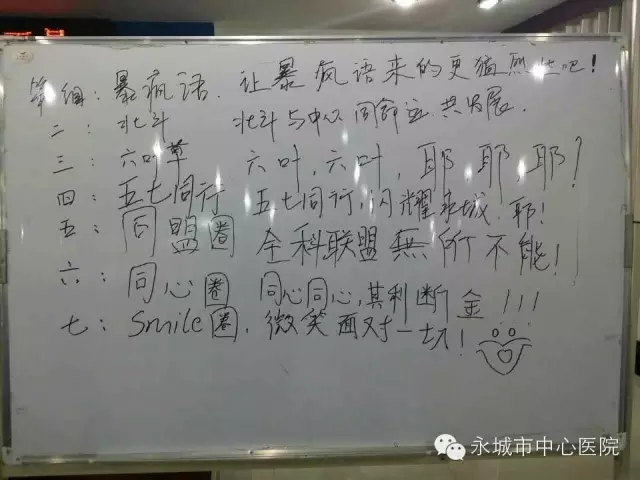 第一组：暴疯语．让暴疯语来的更猛烈些吧！
二：北斗 北斗与中心同命运共发展．
三：六叶草 六叶，六叶，耶耶耶！
四：五七同行 五七同行，闪耀永城．耶！
五：同盟圈 全科联盟無所不能！
六：同心圈 同心同心，其利断金！！！
七：smile圈．微笑面对一切！
永城市中心医院